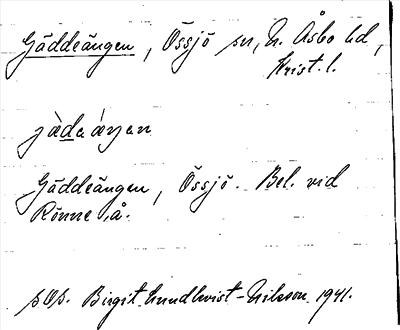 Gäddeängen, Össjö sn, N. Åsbo hd,
Krist. l.
jàdeáŋen
Gäddeängen, Össjö. Bel. vid
Rönne å.
Birgit Lundkvist-Nilsson 1941.